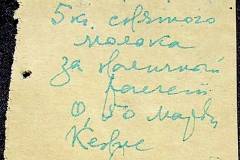 5 кг. снятого
молока
за наличный
расчет
0,50 марки